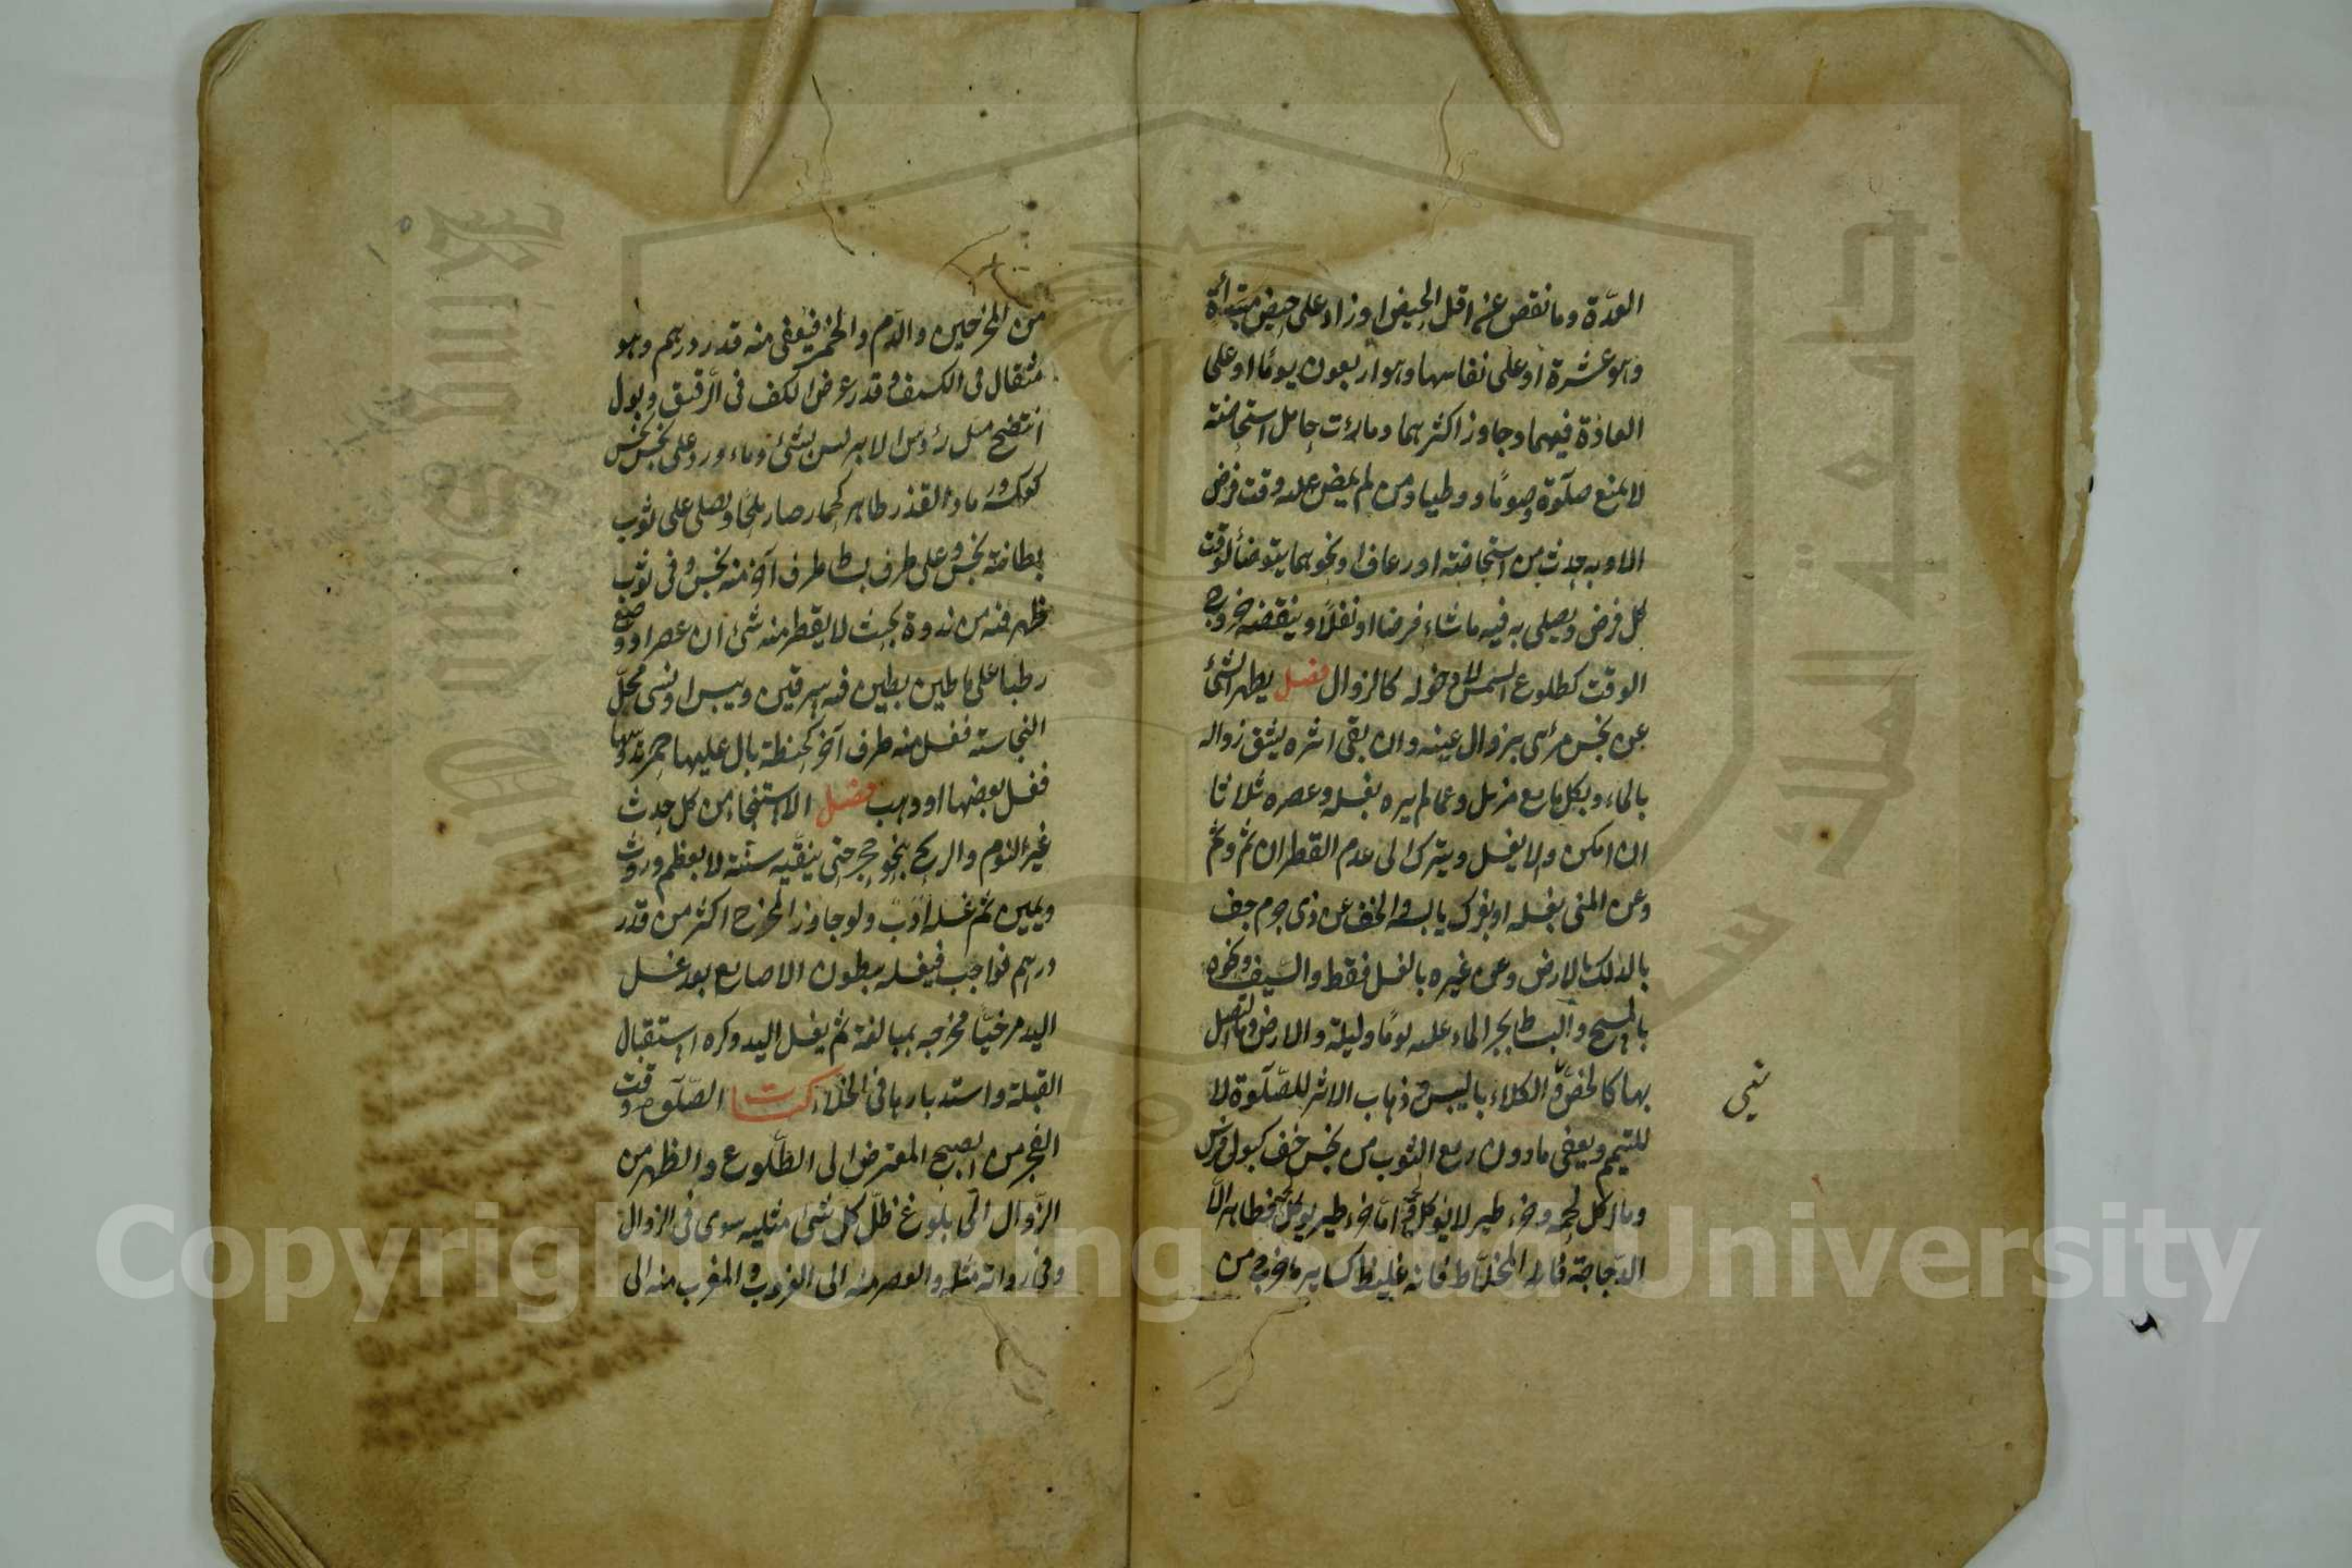 العدّة وما نقص عن اقل الحيض او زاد على حيض مبتدأة
وهو عشرة او على نفاسها وهو اربعون يومًا او على
العادة فيهما وجاوز اكثرهما وما رأت حامل استحاضة
لا يمنع صلوة وصومًا ووطيا ومن لم يمض عليه وقت فرض
الا وبه حدث من استحاضة او رعاف او نحوهما يتوضأ لوقت
كل فرض ويصلى به فيه ما شاء فرضا او نفلًا وينقضه خروج
الوقت كطلوع الشمس لا دخوله كالزوال فصل يطهر الشئ
عن نجس مرئى بزوال عينه وان بقى اثره يشق زواله
بالماء وبكل مايع مزيل وعما لم يره بغسله وعصره ثلاثا
ان امكن والا يغسل ويترك الى عدم القطران ثم وثم
وعن المنى بغسله او بفرك يابسه والخف عن ذى جرم جف
بالدلك بالارض وعن غيره بالغسل فقط والسيف ونحوه
بالمسح والبساط بجر الماء عليه يومًا وليلة والارض وما اتصل
بها كالخصّ والكلاء باليبس وذهاب الاثر للصّلوة لا
للتيمم ويعفى ما دون ربع الثوب من نجس خف كبول فرس
وما اكل لحمه وخرء طير لا يؤكل لحمه امّا خرء طير يؤكل لحمه فطاهر الّا
الدّجاجة فانه غليظ كساير ما خرج من
من المخرجين والدّم والخمر فيعفى منه قدر درهم وهو
مثقال فى الكثيف وقدر عرض الكف فى الرّقيق وبول
انتضح مثل رؤس الابر ليس بشئ وماء ورد على نجس نجس
كعكسه ورماد القذر طاهر كحمار صار ملحًا ويصلى على ثوب
بطانته نجس وعلى طرف بساط طرف آخر منه نجس وفى ثوب
ظهر فيه من ندوة بحيث لا يقطر منه شئ ان عصر او وضع
رطبا على ما طين بطين فيه سرقين ويبس او نسى محلّ
النجاسة فغسل منه طرف آخر كحنطة بال عليها حمر تدوسها
فغسل بعضها او وهب فصل الاستنجاء من كل حدث
غير النوم والريح بنحو حجر حتى ينقيه سنّة لا بعظم وروث
ويمين ثم غسله ادب ولو جاوز المخرج اكثر من قدر
درهم فواجب فيغسله ببطون الاصابع بعد غسل
اليد مرخيًا مخرجه بمبالغة ثم يغسل اليد وكره استقبال
القبلة واستدبارها فى الخلاء كتاب الصّلوة وقت
الفجر من الصبح المعترض الى الطّلوع والظهر من
الزّوال الى بلوغ ظلّ كل شئ مثليه سوى فى الزوال
وفى رواية مثله والعصر منه الى الغروب والمغرب منه الى
Copyright © King Saud University
جامعة الملك سعود
King Saud Univ